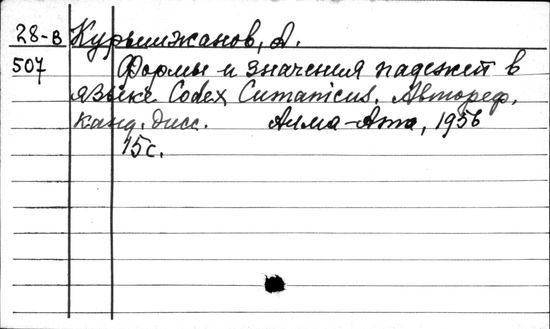 28-в Курышжанов, А.
507 Формы и значения падежей в
языке Codex Cumanicus. Автореф.
канд. дисс. Алма-Ата, 1956
15 с.